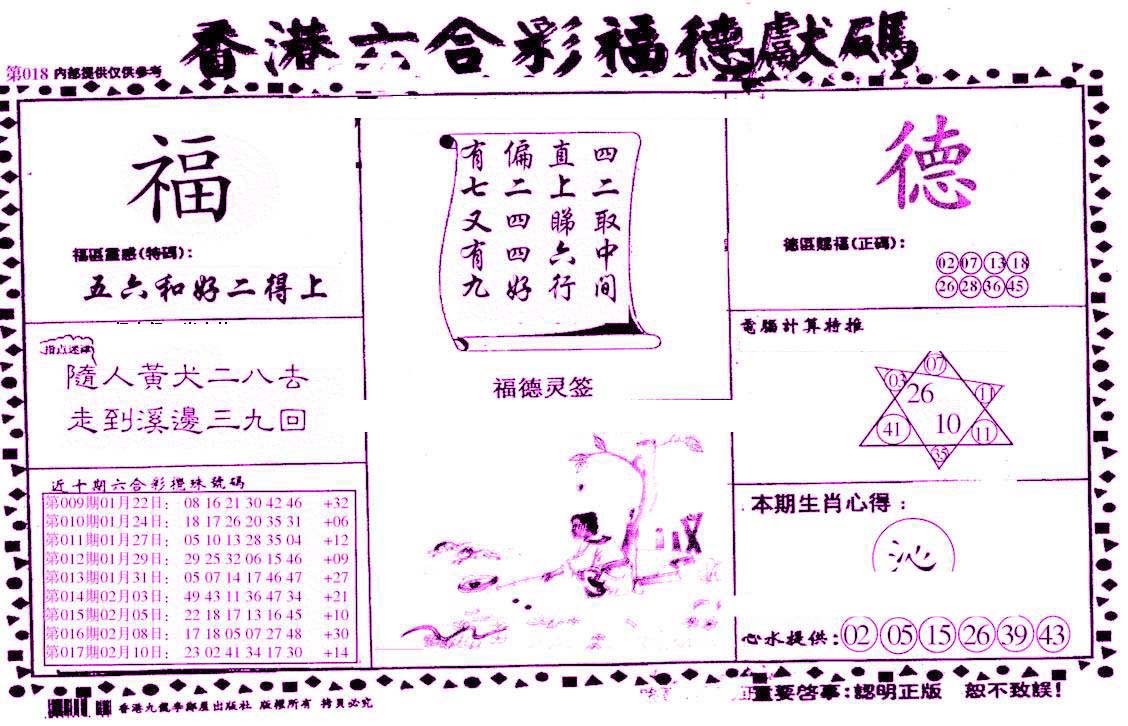 香港六合彩福德獻碼
第018 内部提供仅供参考
福
福區靈感(特碼):
五六和好二得上
指点迷津
隨人黃犬二八去
走到溪邊三九回
近十期六合彩攪珠號碼
第009期01月22日: 08 16 21 30 42 46 +32
第010期01月24日: 18 17 26 20 35 31 +06
第011期01月27日: 05 10 13 28 35 04 +12
第012期01月29日: 29 25 32 06 15 46 +09
第013期01月31日: 05 07 14 17 46 47 +27
第014期02月03日: 49 43 11 36 47 34 +21
第015期02月05日: 22 18 17 13 16 45 +10
第016期02月08日: 17 18 05 07 27 48 +30
第017期02月10日: 23 02 41 34 17 30 +14
四二取中间
直上睇六行
偏二四四好
有七又有九
福德灵签
德
德區賜福(正碼):
02 07 13 18
26 28 36 45
電腦計算特推
07
03 26 11
41 10 11
35
本期生肖心得:
沁
心水提供: 02 05 15 26 39 43
重要啓事:認明正版 恕不致誤!
香港九龍李鄭屋出版社 版權所有 拷貝必究